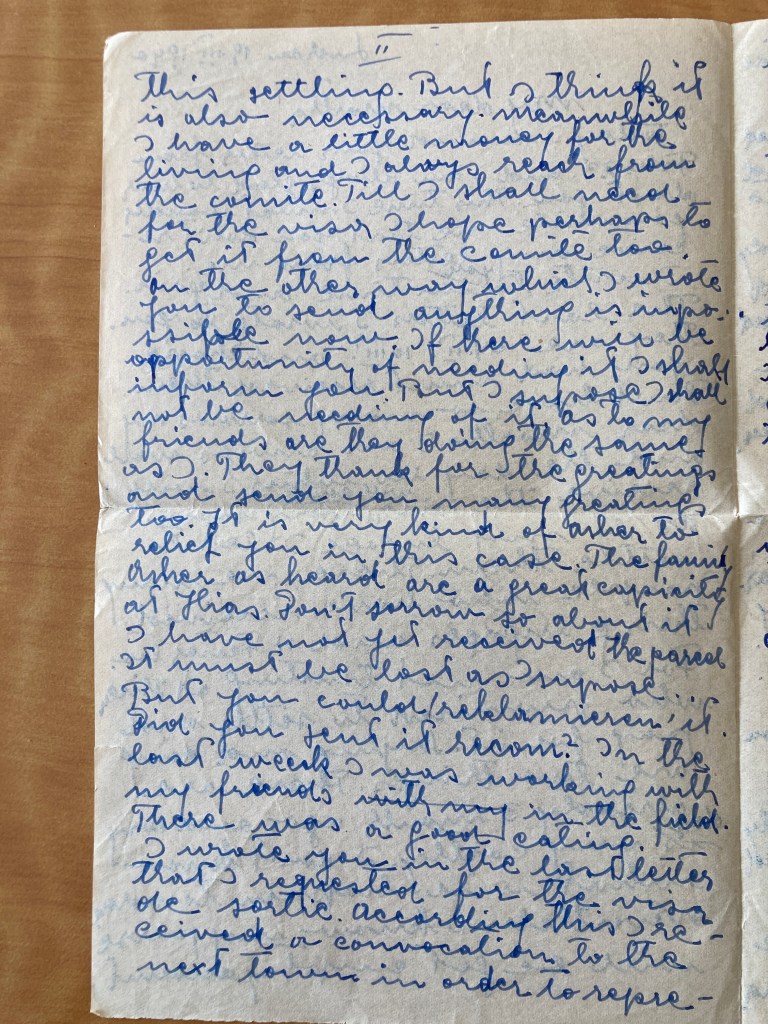 II
this settling. But I think it
is also necessary. Meanwhile
I have a little money for the
living and I always reach from
the comite. Till I shall need
for the visa I hope perhaps to
get it from the comité too.
On the other way which I wrote
you to send anything is impo-
ssible now. If there will be
opportunity of needing it I shall
inform you. But I supose I shall
not be needing of it. As to my
friends are they doing the same
as I. They thank for the greatings
and send you many greatings
too. It is very kind of Asher to
relief you in this case. The family
Asher as heard are a great capicity
at Hias. Don't sorrow so about it
I have not yet received the parcel
It must be lost as I supose..
But you could "reklamieren" it.
Did you sent it recom? In the
last week I was working with
my friends with my in the field.
There was a good eating.
I wrote you in the last letter
that I requested for the visa
de sortie. According this I re-
ceived a convocation to the
next town in order to repre-